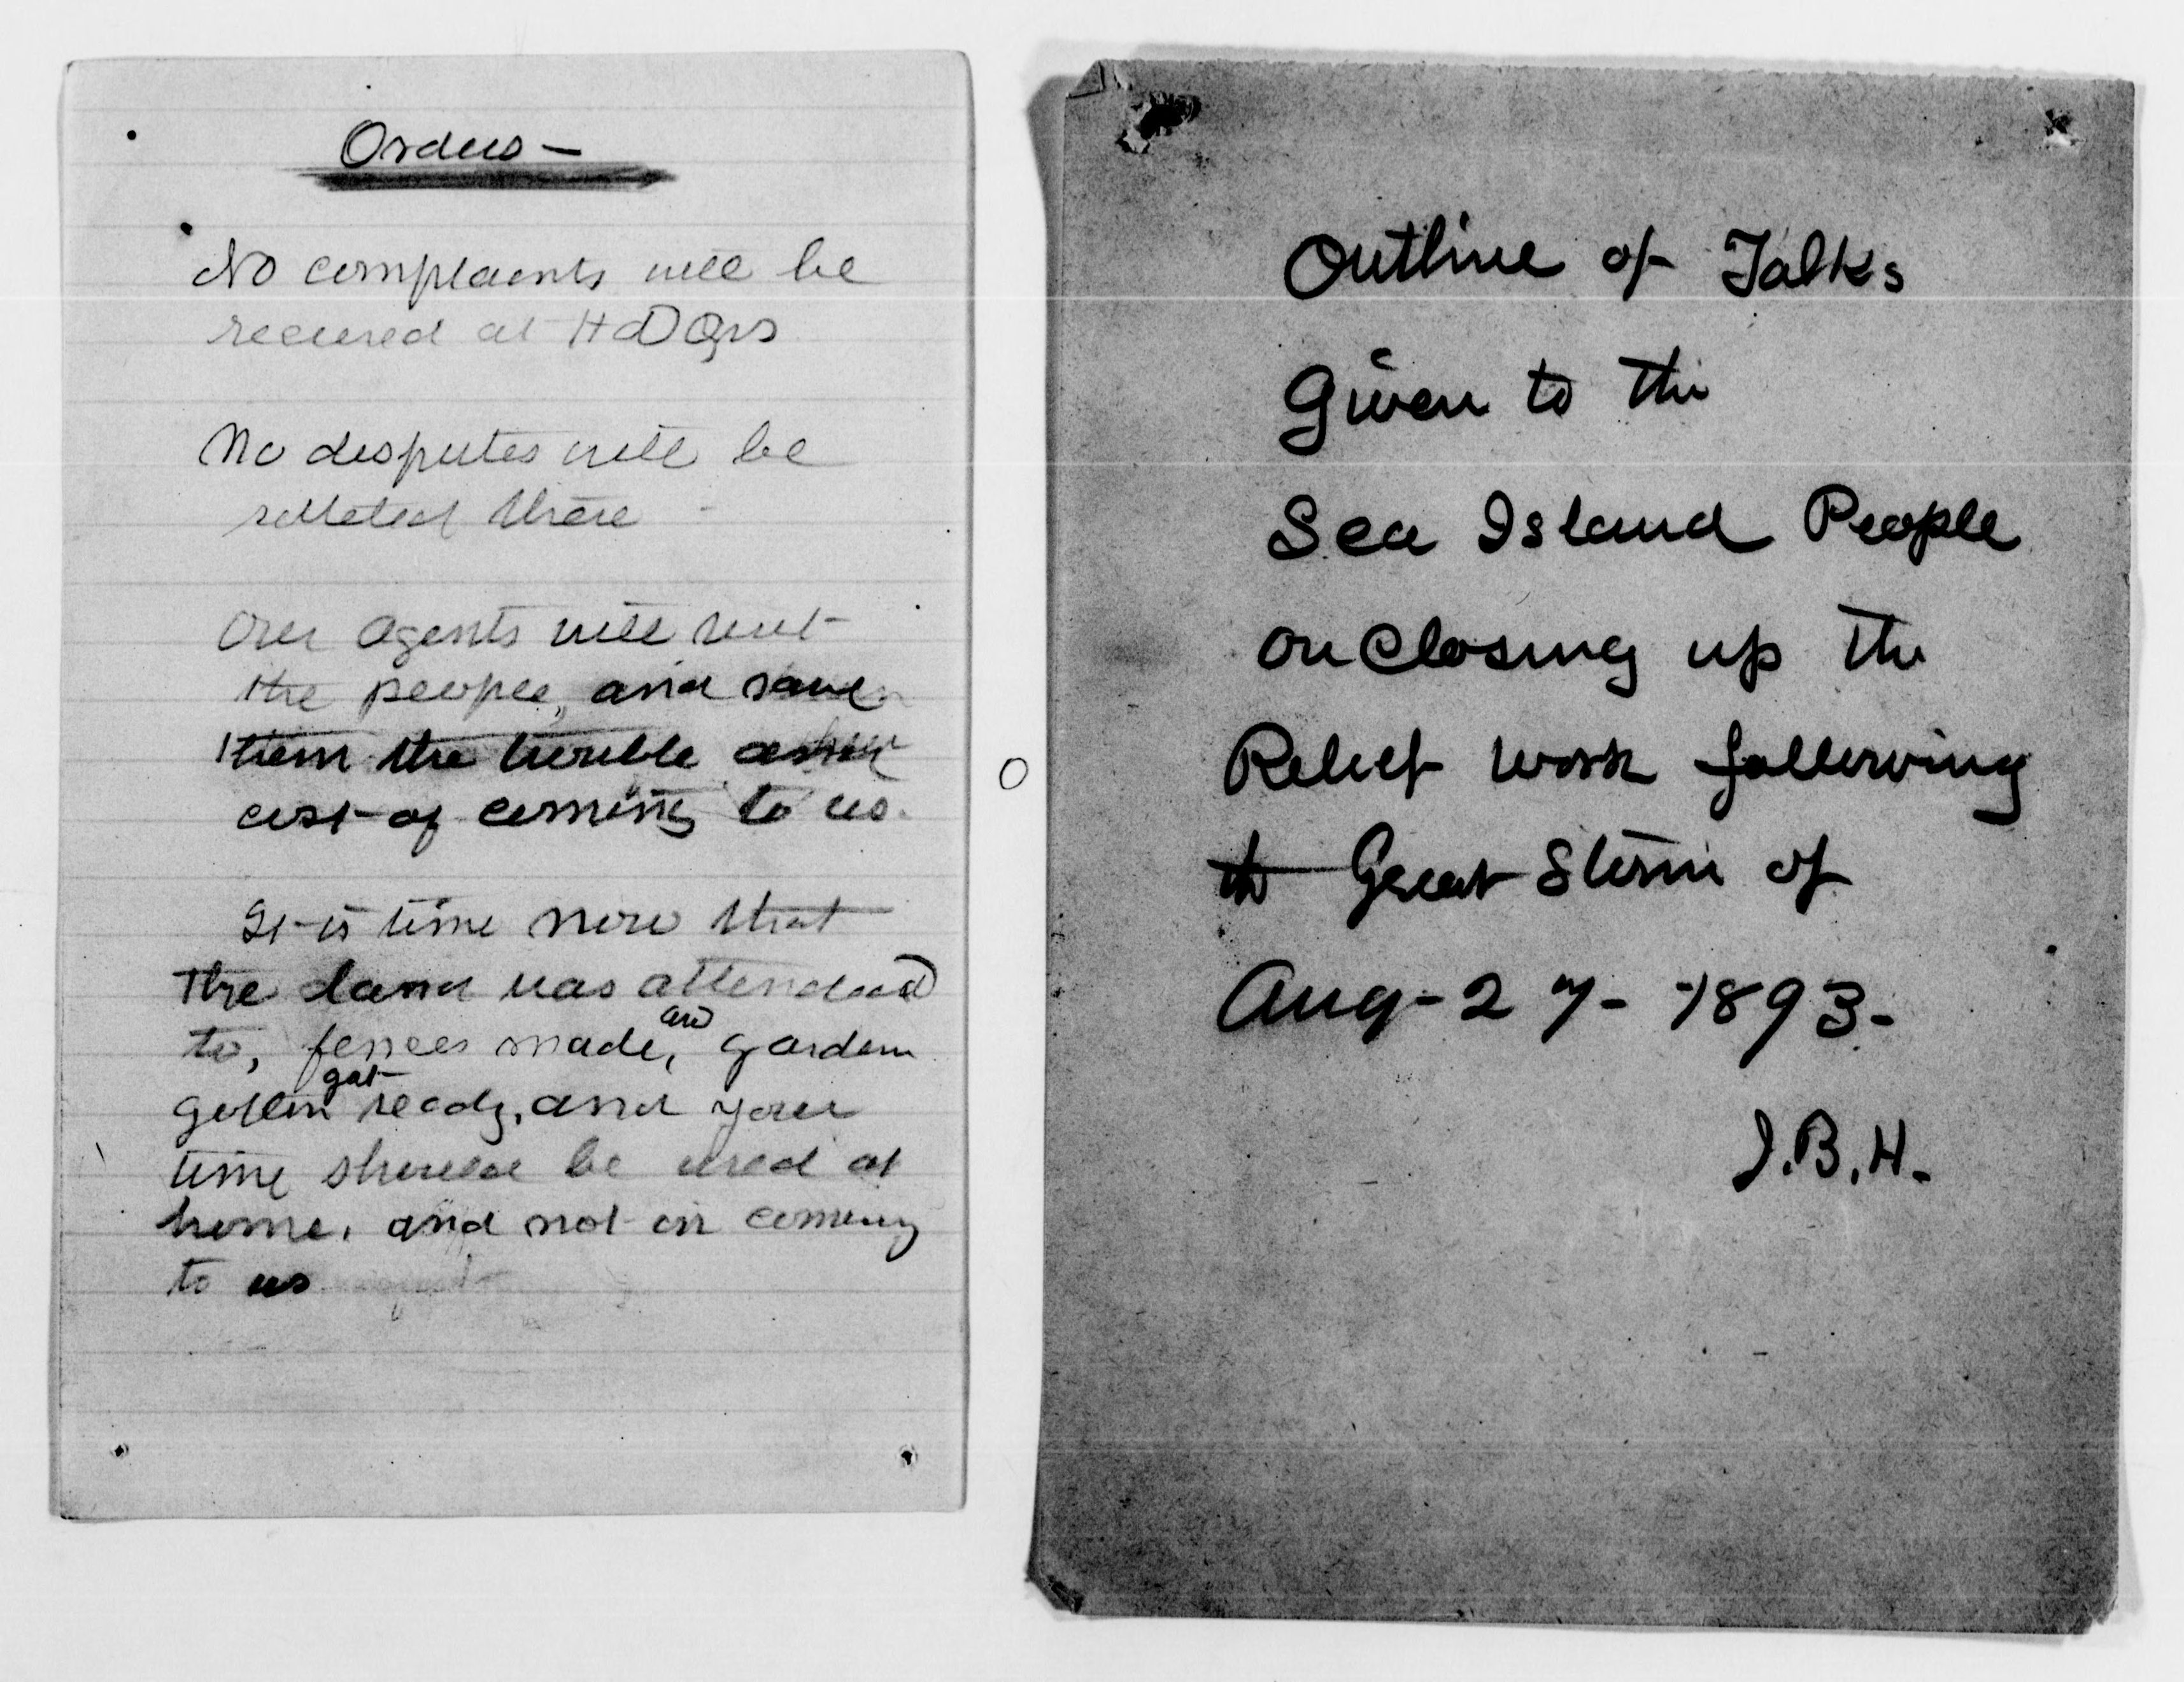 Orders —
No complaints will be
received at HdQrs
No disputes will be
settled there -
Our agents will visit
the people, and save
them the trouble and
cost of coming to us.
It is time now that
the land was attended
to, fences made, and garden
gotten got ready, and your
time should be used at
home, and not in coming
to us
Outline of Talks
Given to the
Sea Island People
on Closing up the
Relief work following
th Great Storm of
Aug - 27 - 1893 -
J.B.H.